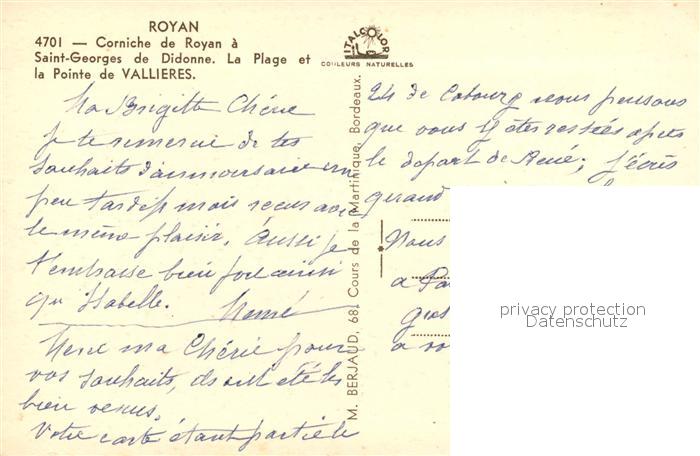 ROYAN
4701 — Corniche de Royan à
Saint-Georges de Didonne. La Plage et
la Pointe de VALLIERES.
ITALCOLOR
COULEURS NATURELLES
M. BERJAUD, 68, Cours de la Martinique, Bordeaux.
Ma Brigitte Chérie
je te remercie de tes
souhaits d'anniversaire un
peu tardifs mais reçus avec
le même plaisir. Aussi je
t'embrasse bien fort ainsi
qu'Isabelle. Mémé
Merci ma Chérie pour
vos souhaits, ils ont été les
bien venus.
Votre carte étant partie le
24 de Cabourg nous pensons
que vous y êtes restées après
le départ de René; j'écris
quand
Nous
a
a
privacy protection
Datenschutz